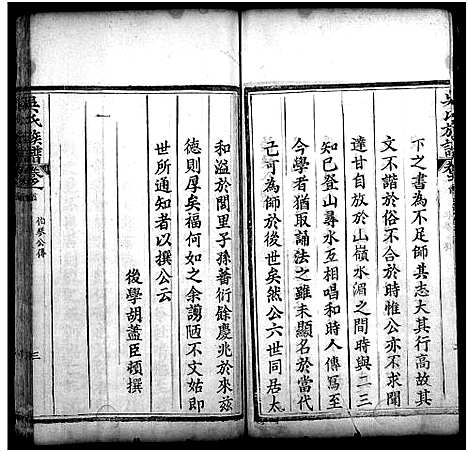 下之書為不足師其志大其行高故其
文不諧於俗不合於時惟公亦不求聞
達甘自放於山嶺水湄之間時與二三
知已登山尋水互相唱和時人傳寫至
今學者猶取誦法之雖未顯名於當代
己可為師於後世矣然公六世同居太
和溢於閭里子孫蕃衍餘慶兆於來茲
德則厚矣福何如之余謭陋不文姑即
世所通知者以撰公云
後學胡藎臣頓撰
伯癸公傳
三